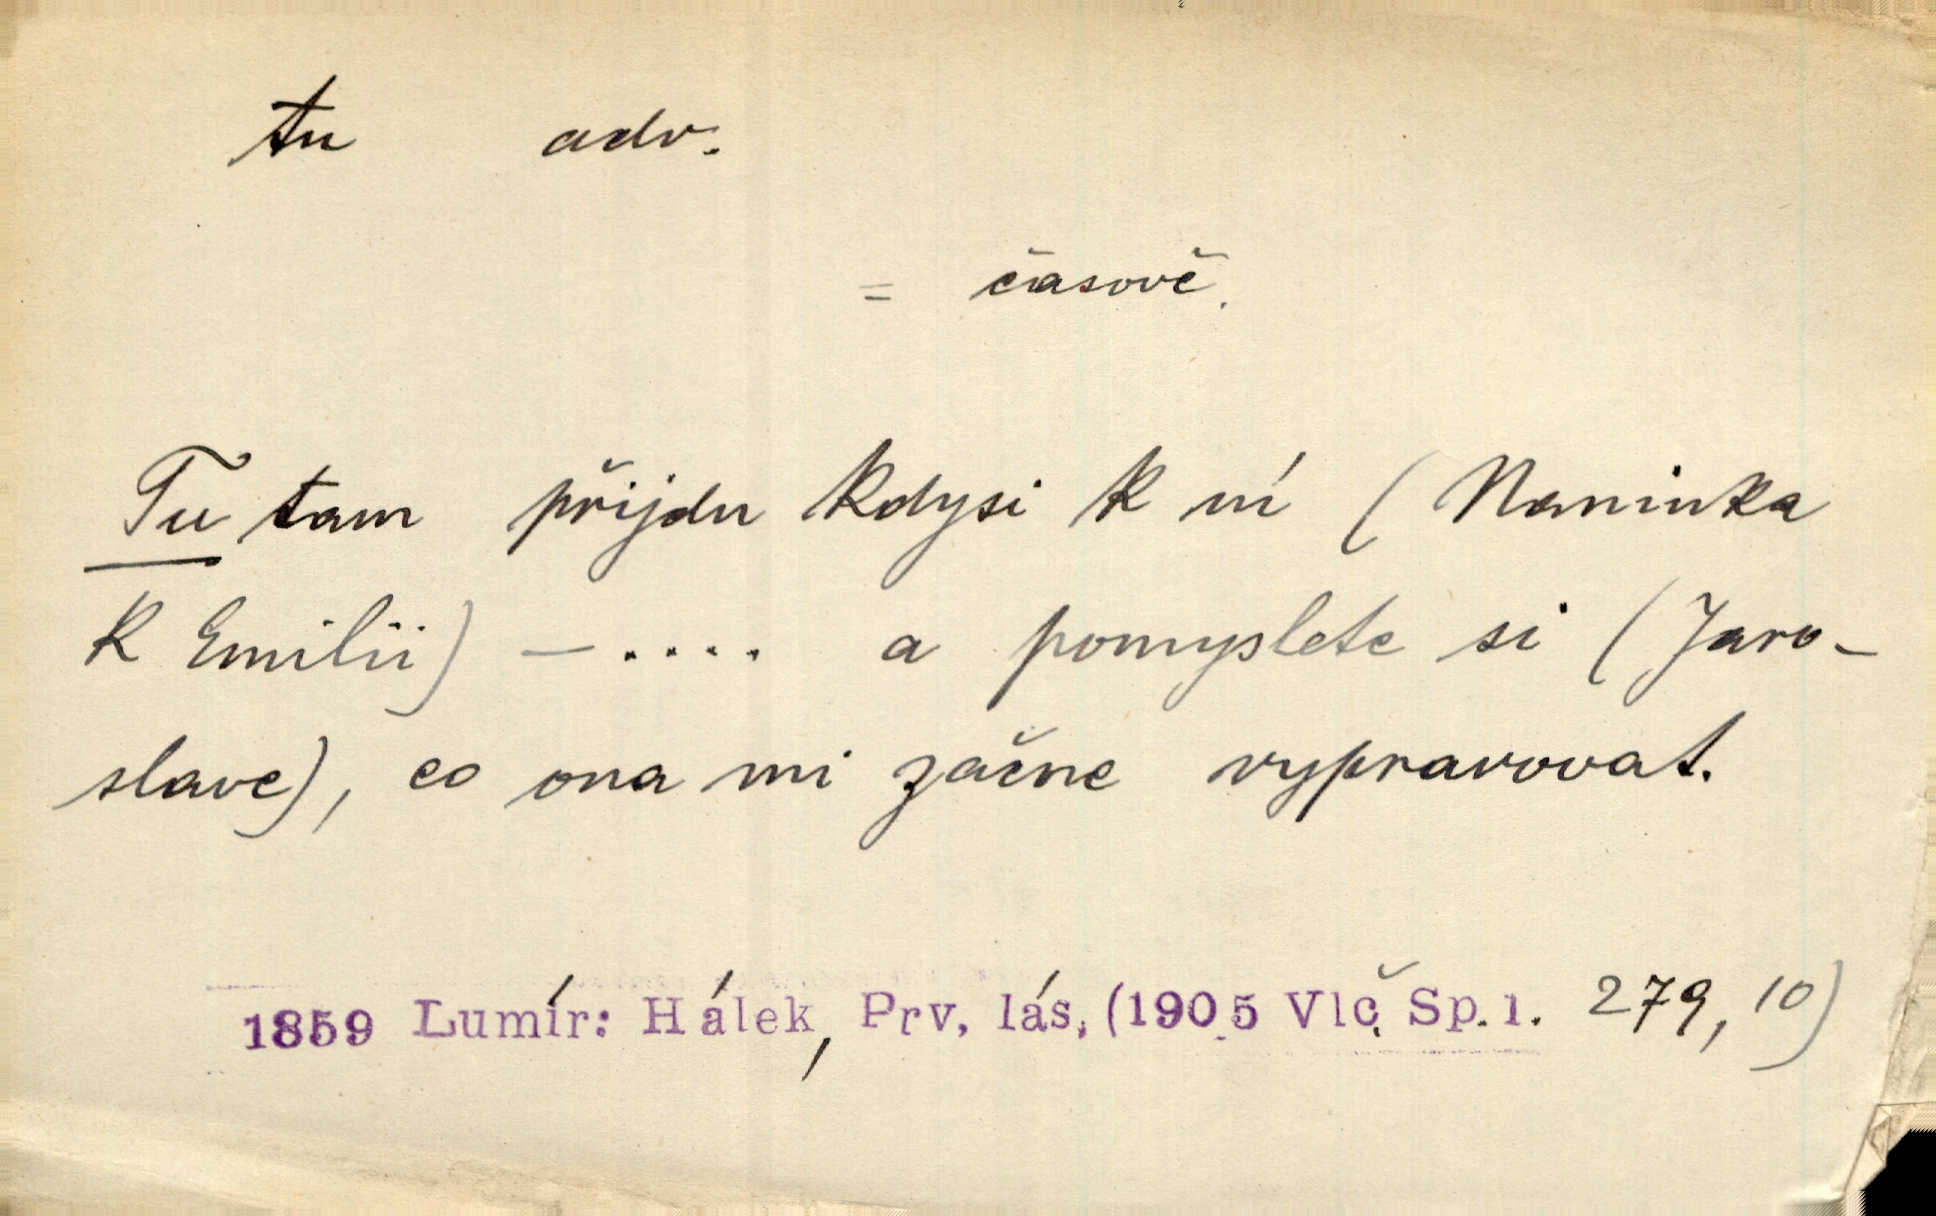 tu adv.
= časově.
Tu tam přijdu kdysi k ní (Naninka
k Emilii) – .... a pomyslete si (Jaro-
slave), co ona mi začne vypravovat.
1859 Lumír: Hálek, Prv. lás. (1905 Vlč. Sp. 1. 279, 10)